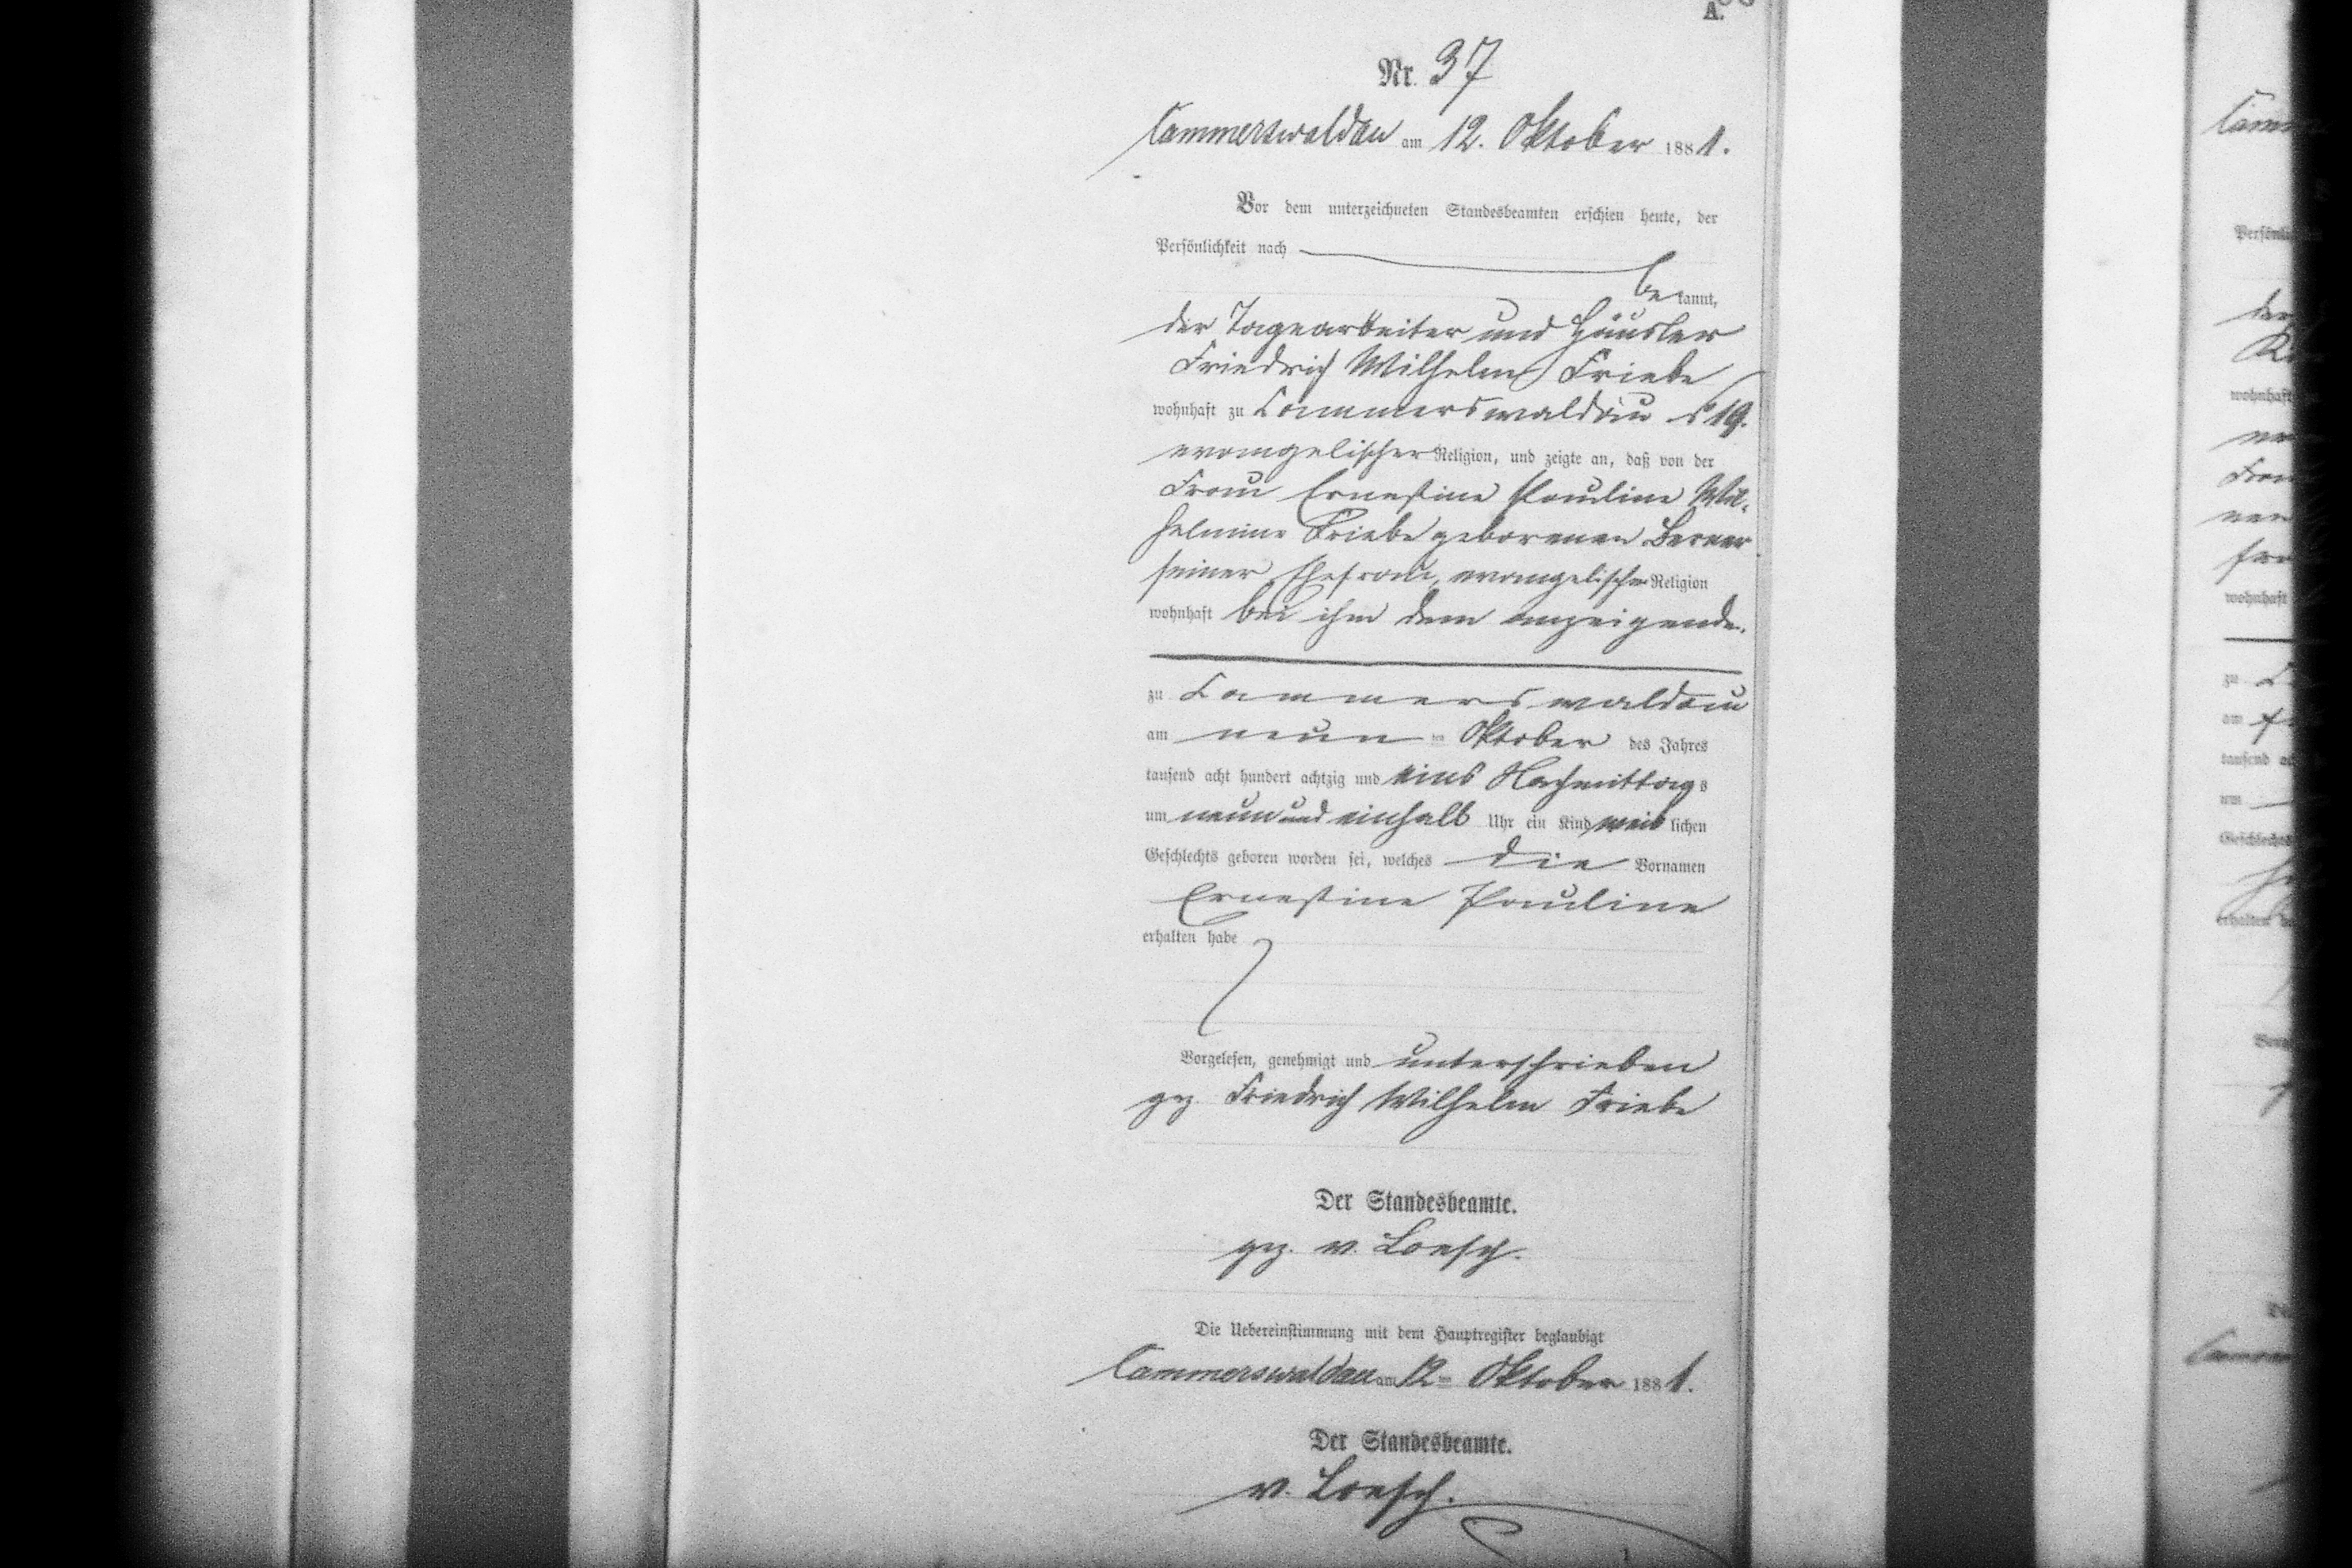 A.
Nr. 37
Cammerswaldau am 12. Oktober 1881.
Vor dem unterzeichneten Standesbeamten erschien heute, der
Persönlichkeit nach
bekannt,
der Tagearbeiter und Häusler
Friedrich Wilhelm Friebe
wohnhaft zu Cammerswaldau 19.
evangelischer Religion, und zeigte an, daß von der
Frau Ernestine Pauline Wil-
helmine Friebe geborenen Berner
seiner Ehefrau, evangelischer Religion
wohnhaft bei ihm dem Anzeigende.
zu Cammerswaldau
am neunten Oktober des Jahres
tausend acht hundert achtzig und eins Nachmittags
um neun und einhalb Uhr ein Kind weiblichen
Geschlechts geboren worden sei, welches die Vornamen
Ernestine Pauline
erhalten habe
Vorgelesen, genehmigt und unterschrieben
gez. Friedrich Wilhelm Friebe
Der Standesbeamte.
gez. v. Loesch.
Die Uebereinstimmung mit dem Hauptregister beglaubigt
Cammerswaldau am 12ten Oktober 1881.
Der Standesbeamte.
v. Loesch.